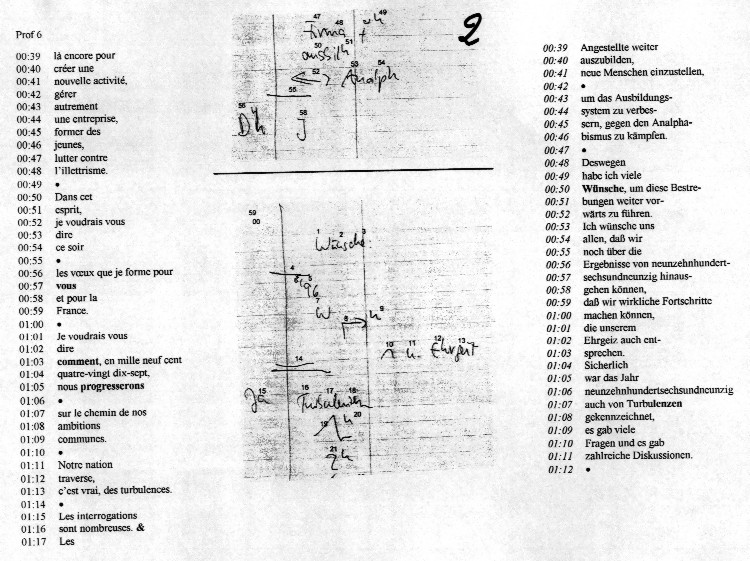 Prof 6
00:39 là encore pour
00:40 créer une
00:41 nouvelle activité,
00:42 gérer
00:43 autrement
00:44 une entreprise,
00:45 former des
00:46 jeunes,
00:47 lutter contre
00:48 l'illettrisme.
00:49 •
00:50 Dans cet
00:51 esprit,
00:52 je voudrais vous
00:53 dire
00:54 ce soir
00:55 •
00:56 les vœux que je forme pour
00:57 vous
00:58 et pour la
00:59 France.
01:00 •
01:01 Je voudrais vous
01:02 dire
01:03 comment, en mille neuf cent
01:04 quatre-vingt dix-sept,
01:05 nous progresserons
01:06 •
01:07 sur le chemin de nos
01:08 ambitions
01:09 communes.
01:10 •
01:11 Notre nation
01:12 traverse,
01:13 c'est vrai, des turbulences.
01:14 •
01:15 Les interrogations
01:16 sont nombreuses. &
01:17 Les
2
47 48 49
Firma
50 51
52 53 54
Analph
55
56 58
59
00
1 2 3
Wünsche:
4 5
96
7
W
8 9
10 11 12 13
u. Ehrgeiz
14
15 16 17 18
Turbulenzen
19 20
21
00:39 Angestellte weiter
00:40 auszubilden,
00:41 neue Menschen einzustellen,
00:42 •
00:43 um das Ausbildungs-
00:44 system zu verbes-
00:45 sern, gegen den Analpha-
00:46 bismus zu kämpfen.
00:47 •
00:48 Deswegen
00:49 habe ich viele
00:50 Wünsche, um diese Bestre-
00:51 bungen weiter vor-
00:52 wärts zu führen.
00:53 Ich wünsche uns
00:54 allen, daß wir
00:55 noch über die
00:56 Ergebnisse von neunzehnhundert-
00:57 sechsundneunzig hinaus-
00:58 gehen können,
00:59 daß wir wirkliche Fortschritte
01:00 machen können,
01:01 die unserem
01:02 Ehrgeiz auch ent-
01:03 sprechen.
01:04 Sicherlich
01:05 war das Jahr
01:06 neunzehnhundertsechsundneunzig
01:07 auch von Turbulenzen
01:08 gekennzeichnet,
01:09 es gab viele
01:10 Fragen und es gab
01:11 zahlreiche Diskussionen.
01:12 •